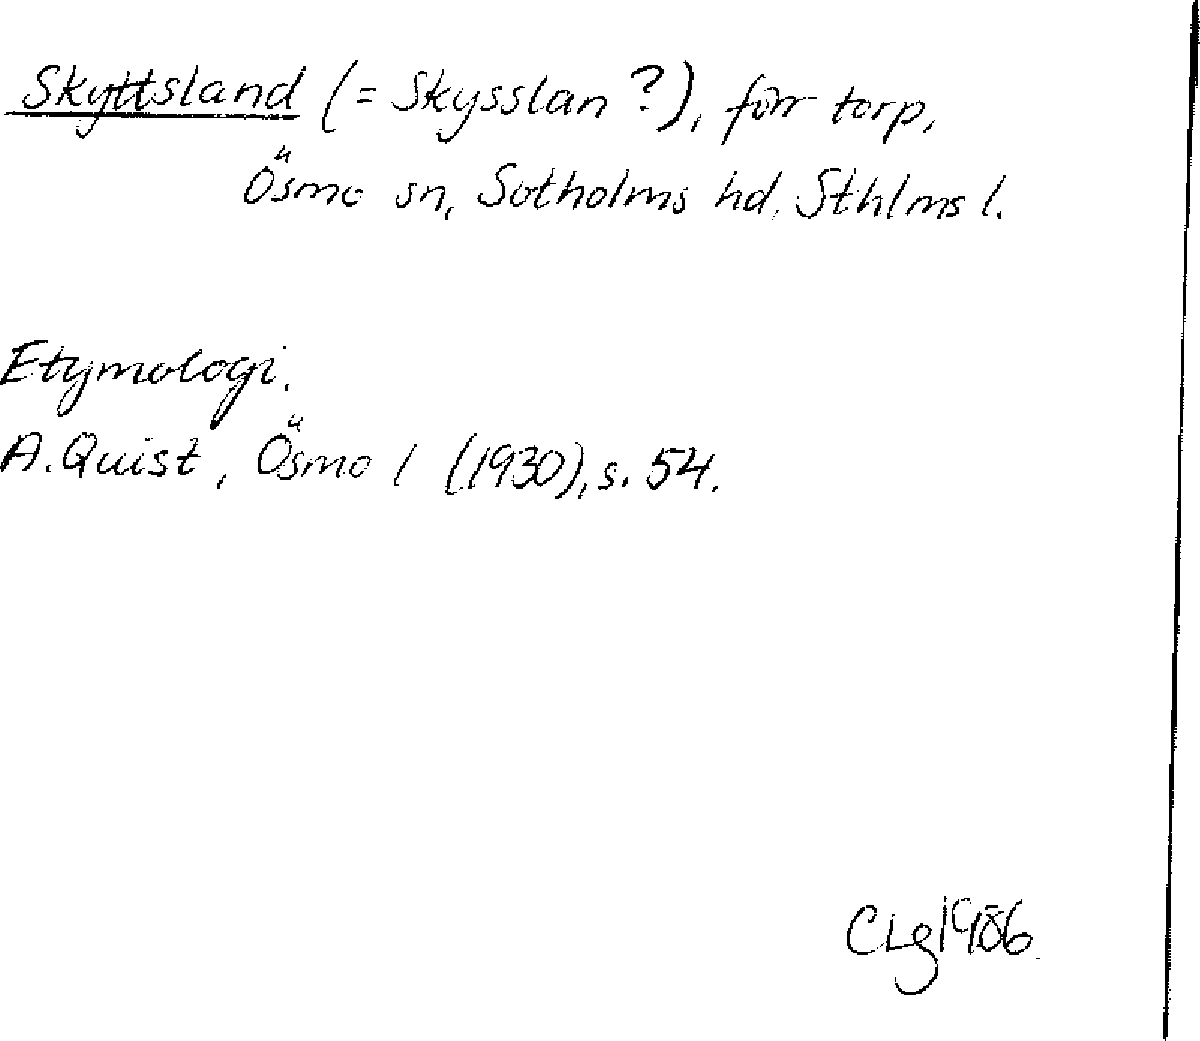 Skyttsland (= Skysslan?), förr torp,
Ösmo sn, Sotholms hd, Sthlms l.
Etymologi.
A. Quist, Ösmo 1 (1930), s. 54.
CLg 1986